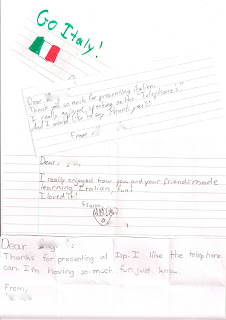 Go Italy!
Dear
Thank you so much for presenting Italian.
I really enjoyed speaking on the "telephone's."
And I would like to say thank you!
From
Dear
I really enjoyed how you and your friends made
learning Italian, fun!
I loved it!
From,
Dear
Thanks for presenting at Isp. I like the telephone
can. I'm having so much fun just know.
From,